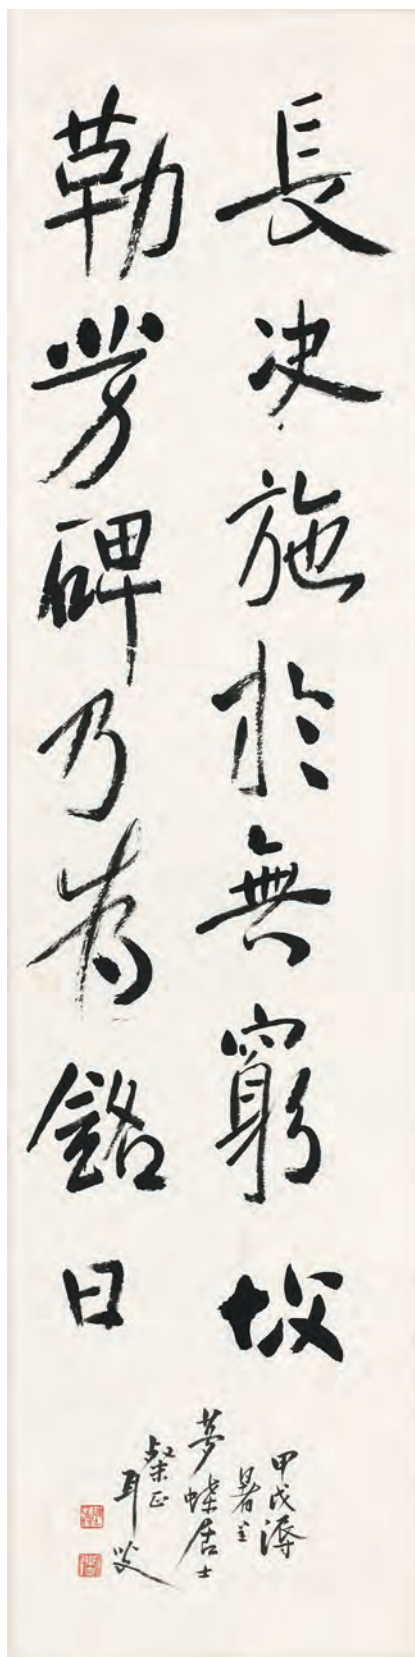 長決施於無窮故
勒芳碑乃為銘曰
甲戌溽
暑呈
夢蝶居士
粲正
耳叟